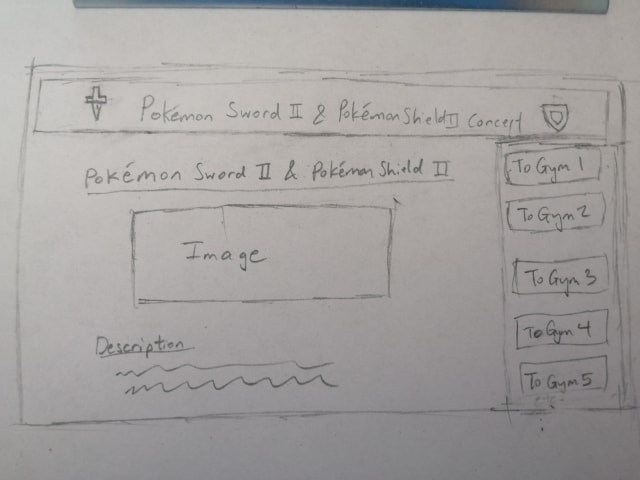 Pokémon Sword II & Pokémon Shield II Concept
Pokémon Sword II & Pokémon Shield II
Image
Description
To Gym 1
To Gym 2
To Gym 3
To Gym 4
To Gym 5